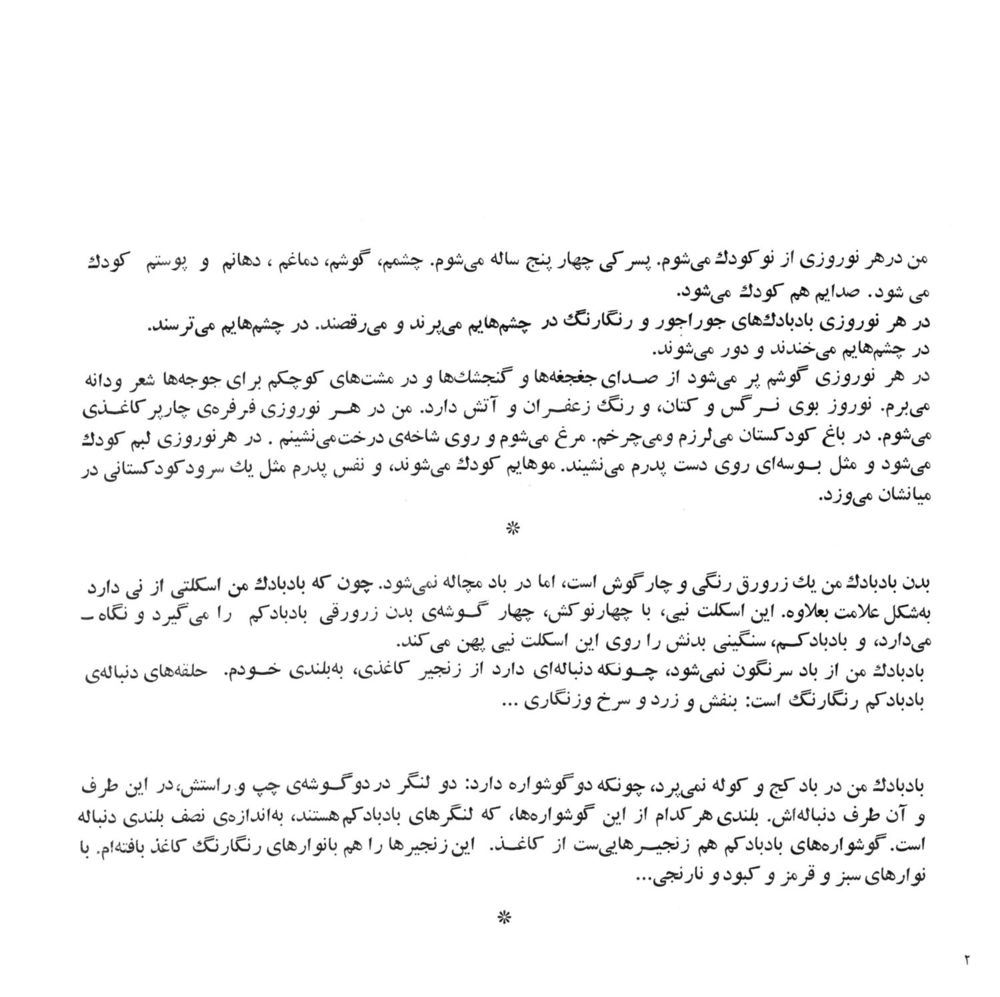 من درهر نوروزی از نو کودك می‌شوم. پسرکی چهار پنج ساله می‌شوم. چشمم، گوشم، دماغم، دهانم و پوستم کودك
می شود. صدایم هم کودك می‌شود.
در هر نوروزی بادبادك‌های جوراجور و رنگارنگ در چشم‌هایم می‌پرند و می‌رقصند. در چشم‌هایم می‌ترسند.
در چشم‌هایم می‌خندند و دور می‌شوند.
در هر نوروزی گوشم پر می‌شود از صدای جغجغه‌ها و گنجشك‌ها و در مشت‌های کوچکم برای جوجه‌ها شعر ودانه
می‌برم. نوروز بوی نرگس و کتان، و رنگ زعفران و آتش دارد. من در هر نوروزی فرفره‌ی چارپر کاغذی
می‌شوم. در باغ کودکستان می‌لرزم ومی‌چرخم. مرغ می‌شوم و روی شاخه‌ی درخت می‌نشینم . در هر نوروزی لبم کودك
می‌شود و مثل بوسه‌ای روی دست پدرم می‌نشیند. موهایم کودك می‌شوند، و نفس پدرم مثل یك سرود کودکستانی در
میانشان می‌وزد.
*
بدن بادبادك من یك زرورق رنگی و چارگوش است، اما در باد مچاله نمی‌شود. چون که بادبادك من اسکلتی از نی دارد
به‌شکل علامت بعلاوه. این اسکلت نیی، با چهارنوکش، چهار گوشه‌ی بدن زرورقی بادبادکم را می‌گیرد و نگاه ـ
می‌دارد، و بادبادکم، سنگینی بدنش را روی این اسکلت نیی پهن می‌کند.
بادبادك من از باد سرنگون نمی‌شود، چونکه دنباله‌ای دارد از زنجیر کاغذی، به‌بلندی خودم. حلقه‌های دنباله‌ی
بادبادکم رنگارنگ است: بنفش و زرد و سرخ وزنگاری ...
بادبادك من در باد کج و کوله نمی‌پرد، چونکه دو گوشواره دارد: دو لنگر در دو گوشه‌ی چپ و راستش،در این طرف
و آن طرف دنباله‌اش. بلندی هر کدام از این گوشواره‌ها، که لنگرهای بادبادکم هستند، به‌اندازه‌ی نصف بلندی دنباله
است. گوشواره‌های بادبادکم هم زنجیرهایی‌ست از کاغذ. این زنجیرها را هم بانوارهای رنگارنگ کاغذ بافته‌ام. با
نوارهای سبز و قرمز و کبود و نارنجی...
*
۲